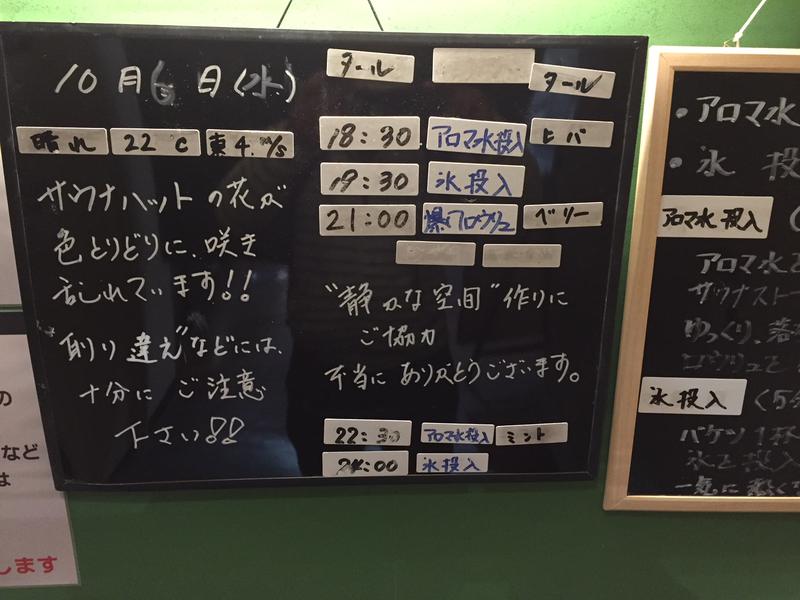 10月6日(水)
晴れ 22℃ 東4.m/s
サウナハットの花が
色とりどりに、咲き
乱れています!!
"取り違え"などには、
十分に ご注意
下さい!!
タール タール
18:30 アロマ水投入 ヒバ
19:30 氷投入
21:00 爆アロウリュ ベリー
"静かな空間"作りに
ご協力
本当に ありがとうございます。
22:30 アロマ水投入 ミント
24:00 氷投入
・アロマ水
・氷 投
アロマ水投入 (
アロマ水を
サウナストー
ゆっくり、落
ロウリュを
氷投入 (5分
バケツ1杯
氷を投入
一気に
の
など
は
します